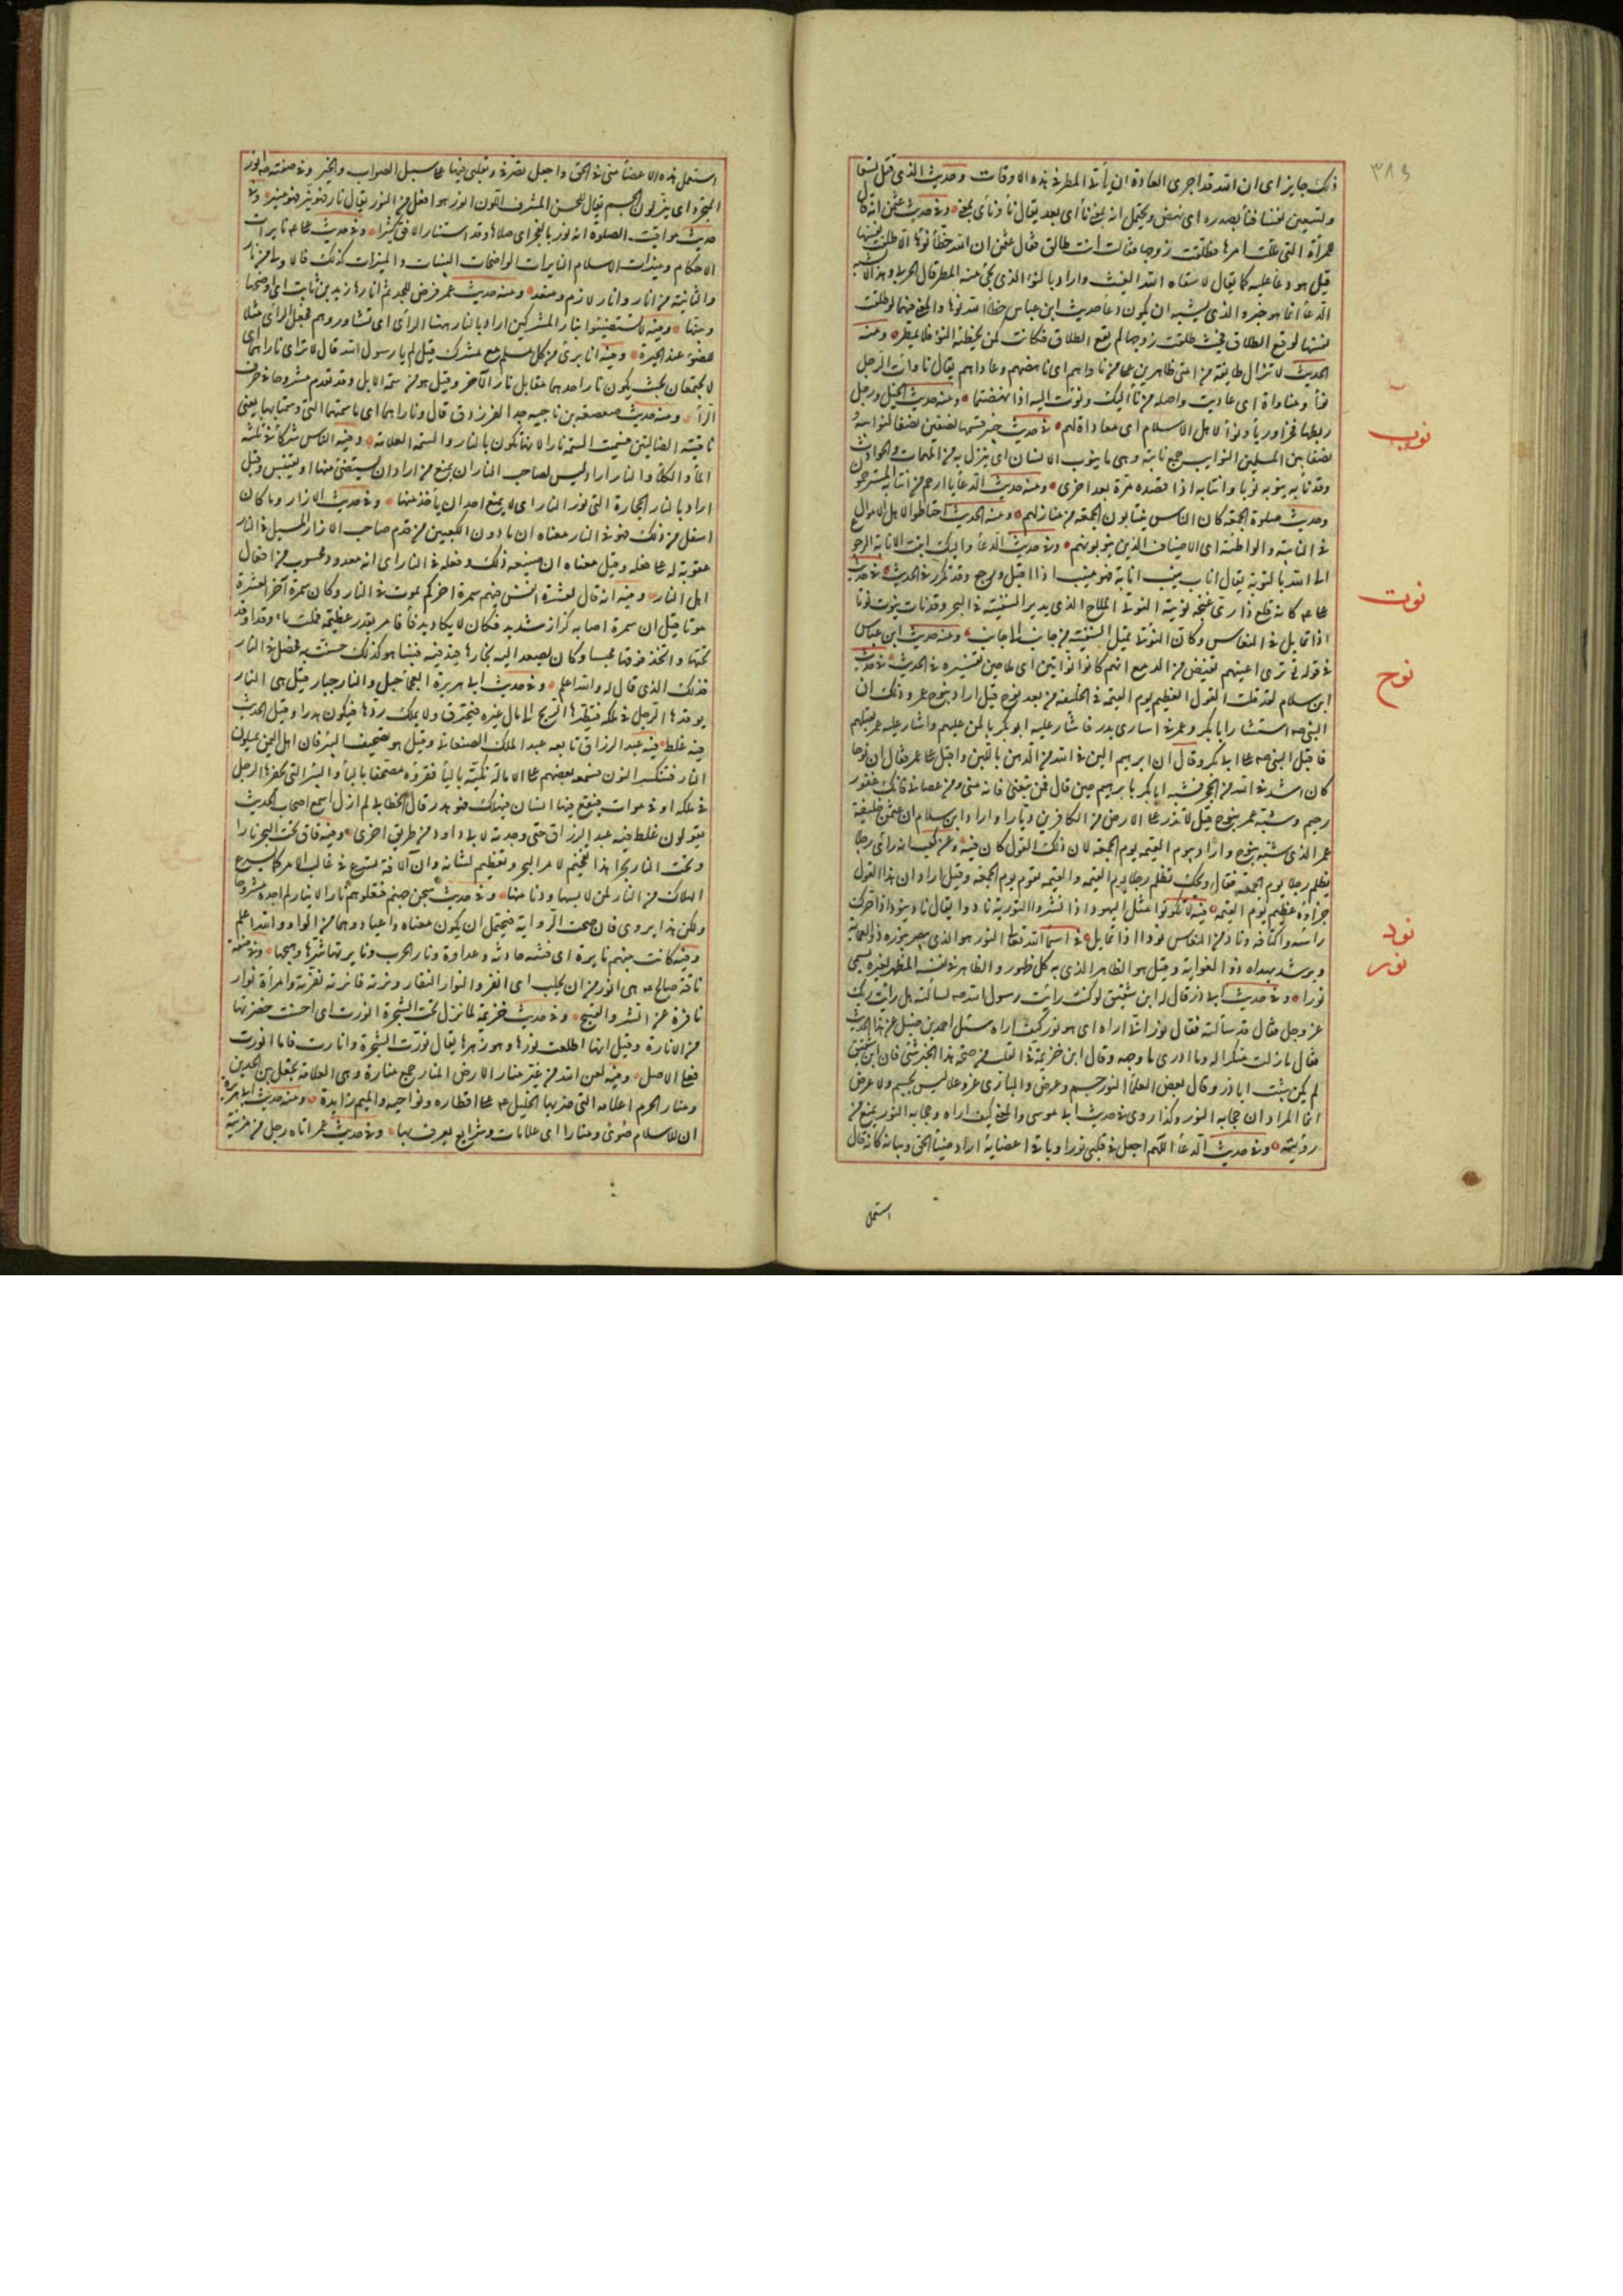 ذلك جايز اى ان الله قد اجرى العادة ان يأتى المطر فى هذه الاوقات وحديث الذى قتل تسعا
وتسعين نفسا فنأ بصدره اى نهض ويحتمل انه بمعنى نأى اى بعد يقال نا ونأى بمعنى وفى حديث عثمن انه قال
للمرأة التى ملكت امرها فطلقت زوجها فقالت انت طالق فقال عثمن ان الله خطأ نوءها الا طلقت نفسها
قيل هو دعا عليها كما يقال لا سقاه الله الغيث واراد بالنوء الذى يجئ منه المطر قال الحربى وهذا لا يشبه
الدعا انما هو خبر والذى يشبه ان يكون دعا حديث ابن عباس خطأ الله نوها والمعنى فيهما لو طلقت
نفسها لوقع الطلاق فحيث طلقت زوجها لم يقع الطلاق فكانت كمن يخطئه النوء فلا يمطر ومنه
الحديث لا تزال طايفة من امتى ظاهرين على من ناواهم اى ناهضهم وعاداهم يقال ناوأت الرجل
نوأ ومناواة اى عاديت واصله من نأ اليك ونؤت اليه اذا نهضتما ومنه حديث الخيل ورجل
ربطها فخرا ورياء ونوأ لاهل الاسلام اى معاداة لهم فى حديث خيبر قسمها نصفين نصفا لنوائبه و
نصفا بين المسلمين النوايب جمع نايبة وهى ما ينوب الانسان اى ينزل به من المهمات والحوادث
وقد نابه ينوبه نوبا وانتابه اذا قصده مرة بعد اخرى ومنه حديث الدعا يا ارحم من انتابه المسترحمون
وحديث صلوة الجمعة كان الناس ينتابون الجمعة من منازلهم ومنه الحديث احتاطوا لاهل الاموال
فى النايبة والواطئة اى الاضياف الذين ينوبونهم وفى حديث الدعا واليك انبت الانابة الرجوع
الى الله بالتوبة يقال اناب ينيب انابة فهو منيب اذا اقبل ورجع وقد تكرر فى الحديث فى حديث
على كانه قلع دارى عنجه نوتيه النوتى الملاح الذى يدبر السفينة فى البحر وقد نات ينوت نوتا
اذا تمايل من النعاس وكان النوتى يميل السفينة من جانب الى جانب ومنه حديث ابن عباس
فى قوله ترى اعينهم تفيض من الدمع انهم كانوا نواتين اى ملاحين تفسيره فى الحديث فى حديث
ابن سلام لقد قلت القول العظيم يوم القيمة فى الخليفة من بعد نوح قيل اراد بنوح عمر وذلك ان
النبى صه استشار ابا بكر وعمر فى اسارى بدر فاشار عليه ابو بكر بالمن عليهم واشار عليه عمر بقتلهم
فاقبل النبى صه على ابى بكر وقال ان ابرهيم الين فى الله من الدهن باللين واقبل على عمر فقال ان نوحا
كان اشد فى الله من الحجر فشبه ابا بكر بابرهيم حين قال فمن تبعنى فانه منى ومن عصانى فانك غفور
رحيم وشبه عمر بنوح حين قال لا تذر على الارض من الكافرين ديارا واراد ابن سلام ان عثمن خليفة
عمر الذى شبه بنوح واراد بيوم القيمة يوم الجمعة لان ذلك القول كان فيه وعن كعب انه رأى رجلا
يظلم رجلا يوم الجمعة فقال ويحك تظلم رجلا يوم القيمة والقيمة تقوم يوم الجمعة وقيل اراد ان هذا القول
جزاؤه عظيم يوم القيمة فيه لا تكونوا مثل اليهود اذا نشروا التورية نادوا يقال ناد ينود اذا حرك
راسه واكتافه وناد من النعاس نودا اذا تمايل فى اسما الله تعالى النور هو الذى يبصر بنوره ذو العماية
ويرشد بهداه ذو الغواية وقيل هو الظاهر الذى به كل ظهور والظاهر فى نفسه المظهر لغيره يسمى
نورا وفى حديث ابى ذر قال له ابن شقيق لو كنت رايت رسول الله صه لسالته هل رايت ربك
عز وجل فقال قد سألته فقال نور انى اراه اى هو نور كيف اراه سئل احمد بن حنبل عن هذا الحديث
فقال ما زلت منكرا له وما ادرى ما وجهه وقال ابن خزيمة فى القلب من صحة هذا الخبر شئ فان ابن شقيق
لم يكن يثبت ابا ذر وقال بعض العلما النور جسم وعرض والبارى عز وعلا ليس بجسم ولا عرض
انما المراد ان حجابه النور وكذا روى فى حديث ابى موسى والمعنى كيف اراه وحجابه النور يمنع من
رؤيته وفى حديث الدعا اللهم اجعل فى قلبى نورا وباقى اعضايه اراد ضياء الحق وبيانه كانه قال
استعمل
٣٨٩
نوب
نوت
نوح
نود
نور
استعمل هذه الاعضا منى فى الحق واجعل تصرفى وتقلبى فيها على سبيل الصواب والخير وفى صفته صه انور
المتجرد اى نير لون الجسم يقال للحسن المشرق اللون انور هو افعل من النور يقال نار فهو نير فهو منير وفى
حديث مواقيت الصلوة انه نور بالفجر اى صلاها وقد استنار الافق كثيرا وفى حديث على نايرات
الاحكام ومنيرات الاسلام النايرات الواضحات البينات والمنيرات كذلك فالاولى من نار
والثانية من انار وانار لازم ومتعد ومنه حديث عمر فرض للجد ثم انارها زيد بن ثابت اى اوضحها
وبينها وفيه لا تستضيئوا بنار المشركين اراد بالنار ههنا الراى اى تشاوروهم فجعل الراى مثلا
للضوء عند الحيرة وفيه انا برئ من كل مسلم مع مشرك قيل لم يا رسول الله قال لا تراى ناراهما اى
لا يجتمعان بحيث يكون نار احدهما مقابل نار الآخر وقيل هو من سمة الابل وقد تقدم مشروحا فى حرف
الرا ومنه حديث صعصعة بن ناجية جد الفرزدق قال وناراهما اى ما سمتهما التى وسمتا بها يعنى
ناقتيه الضالتين فسميت السمة نارا لانها تكون بالنار والسمة العلامة وفيه الناس شركاء فى ثلثة
الماء والكلأ والنار اراد ليس لصاحب النار ان يمنع من اراد ان يستضئ منها او يقتبس وقيل
اراد بالنار الحجارة التى تورى النار اى لا يمنع احد ان ياخذ منها وفى حديث الازار وما كان
اسفل من ذلك فهو فى النار معناه ان ما دون الكعبين من قدم صاحب الازار المسبل فى النار
عقوبة له على فعله وقيل معناه ان صنيعه ذلك وفعله فى النار اى انه معدود محسوب من افعال
اهل النار وفيه انه قال لعشرة انفس فيهم سمرة اخركم يموت فى النار وكان سمرة آخر العشرة
موتا قيل ان سمرة اصابه كزاز شديد فكان لا يكاد يدفأ فامر بقدر عظيمة فملئت ماء وقد اوقد
تحتها واتخذ فوقها مجلسا وكان يصعد اليه بخارها فيدفيه فبينا هو كذلك خسفت به فحصل فى النار
فذلك الذى قال له والله اعلم وفى حديث ابى هريرة العجماء جبار والنار جبار قيل هى النار
يوقدها الرجل فى ملكه فتطيرها الريح الى مال غيره فيحترق ولا يملك ردها فيكون هدرا وقيل الحديث
فيه غلط فيه عبد الرزاق تابعه عبد الملك الصنعانى وقيل هو تصحيف البئر فان اهل اليمن يميلون
النار فتنكسر النون فسمعه بعضهم على الامالة فكتبه بالياء فقرؤه مصحفا بالباء والبئر التى يحفرها الرجل
فى ملكه او فى موات فيقع فيها انسان فيهلك فهو هدر قال الخطابى لم ازل اسمع اصحاب الحديث
يقولون غلط فيه عبد الرزاق حتى وجدته لابى داود من طريق اخرى وفيه فان تحت البحر نارا
وتحت النار بحرا هذا تفخيم لامر البحر وتعظيم لشانه وان الآفة تسرع فى غالب الامر كما يسرع
الهلاك من النار لمن لابسها ودنا منها وفى حديث سجن جهنم فتعلوهم نار الانيار لم اجده مشروحا
ولكن هذا يروى فان صحت الرواية فيحتمل ان يكون معناه واعياد وهما من الواو والله اعلم
وفيه كانت بينهم نايرة اى فتنة حادثة وعداوة ونار الحرب ونايرتها شرها وهيجها وفى صفة
ناقة صالح هى انور من ان تحلب اى انفر والنوار النفار ونرته فانرته نفرته وامرأة نوار
نافرة عن الشر والقبيح وفى حديث خزيمة لما نزل تحت الشجرة انورت اى احسنت خضرتها
من الانارة وقيل انها اطلعت نورها وهو زهرها يقال نورت الشجرة وانارت فاما انورت
فعلى الاصل وفيه لعن الله من غير منار الارض المنار جمع منارة وهى العلامة تجعل بين الحدين
ومنار الحرم اعلامه التى ضربها الخليل على اقطاره ونواحيه والميم زايدة ومنه حديث ابى هريرة
ان للاسلام صوى ومنارا اى علامات وشرايع يعرف بها وفى حديث عمر اتاه رجل من مزينة